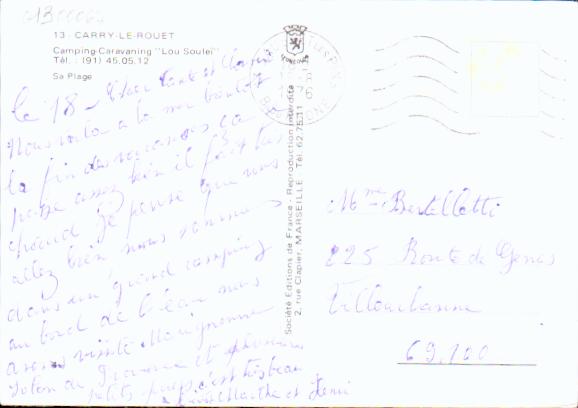 13 - CARRY-LE-ROUET
Camping-Caravaning "Lou Souleï"
Tél. : (91) 45.05.12
Sa Plage
le 18 - Cher Tante et
Nous voilà à la mer bientôt
la fin des vacances ça
passe assez bien il fait très
chaud je pense que vous
allez bien nous sommes
dans un grand camping
au bord de l'eau nous
avons visité Marignane
Salon de Provence et plusieurs
petits pays c'est très beau
Marthe et
Société Editions de France - Reproduction interdite
2, rue Clapier, MARSEILLE Tél. 62.75.11
Mme Bertellotti
225 Route de Genas
Villeurbanne
69.100